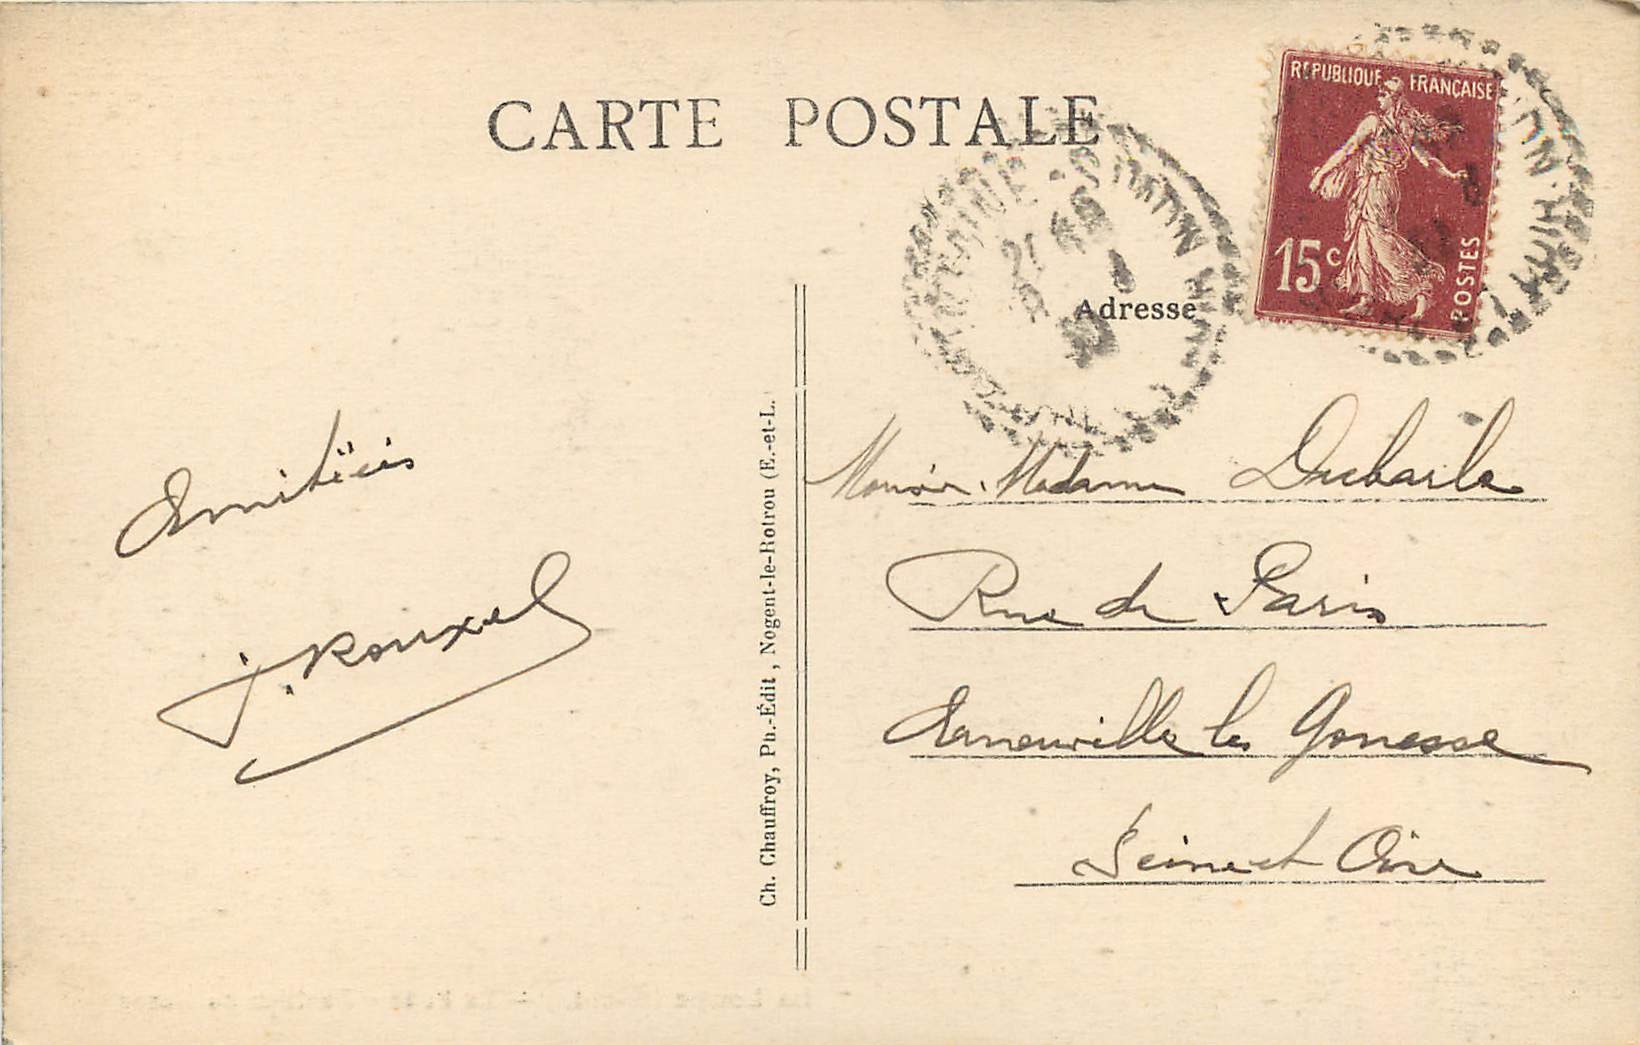 CARTE POSTALE
REPUBLIQUE FRANÇAISE
15 c
POSTES
Adresse
Amitiés
J. Rouxel
Ch. Chauffroy, Ph.-Édit, Nogent-le-Rotrou (E.-et-L.
Madame
Rue de Paris
Arnouville les Gonesse
Seine et Oise